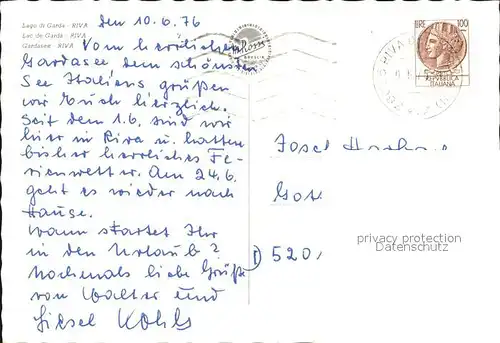 Lago di Garda - RIVA
Lac de Garda - RIVA
Gardasee - RIVA
den 10.6.76
Vom herrlichen
Gardasee dem schönsten
See Italiens grüßen
wir Euch herzlich.
Seit dem 1.6. sind wir
hier in Riva u. hatten
bisher herrliches Fe-
rienwetter. Am 24.6.
geht es wieder nach
Hause.
Wann startet Ihr
in den Urlaub?
Nochmals liebe Grüße
von Walter und
Liesel Kohls
LIRE 100
REPVBBLICA
ITALIANA
RIVA
Josef
D 520
privacy protection
Datenschutz